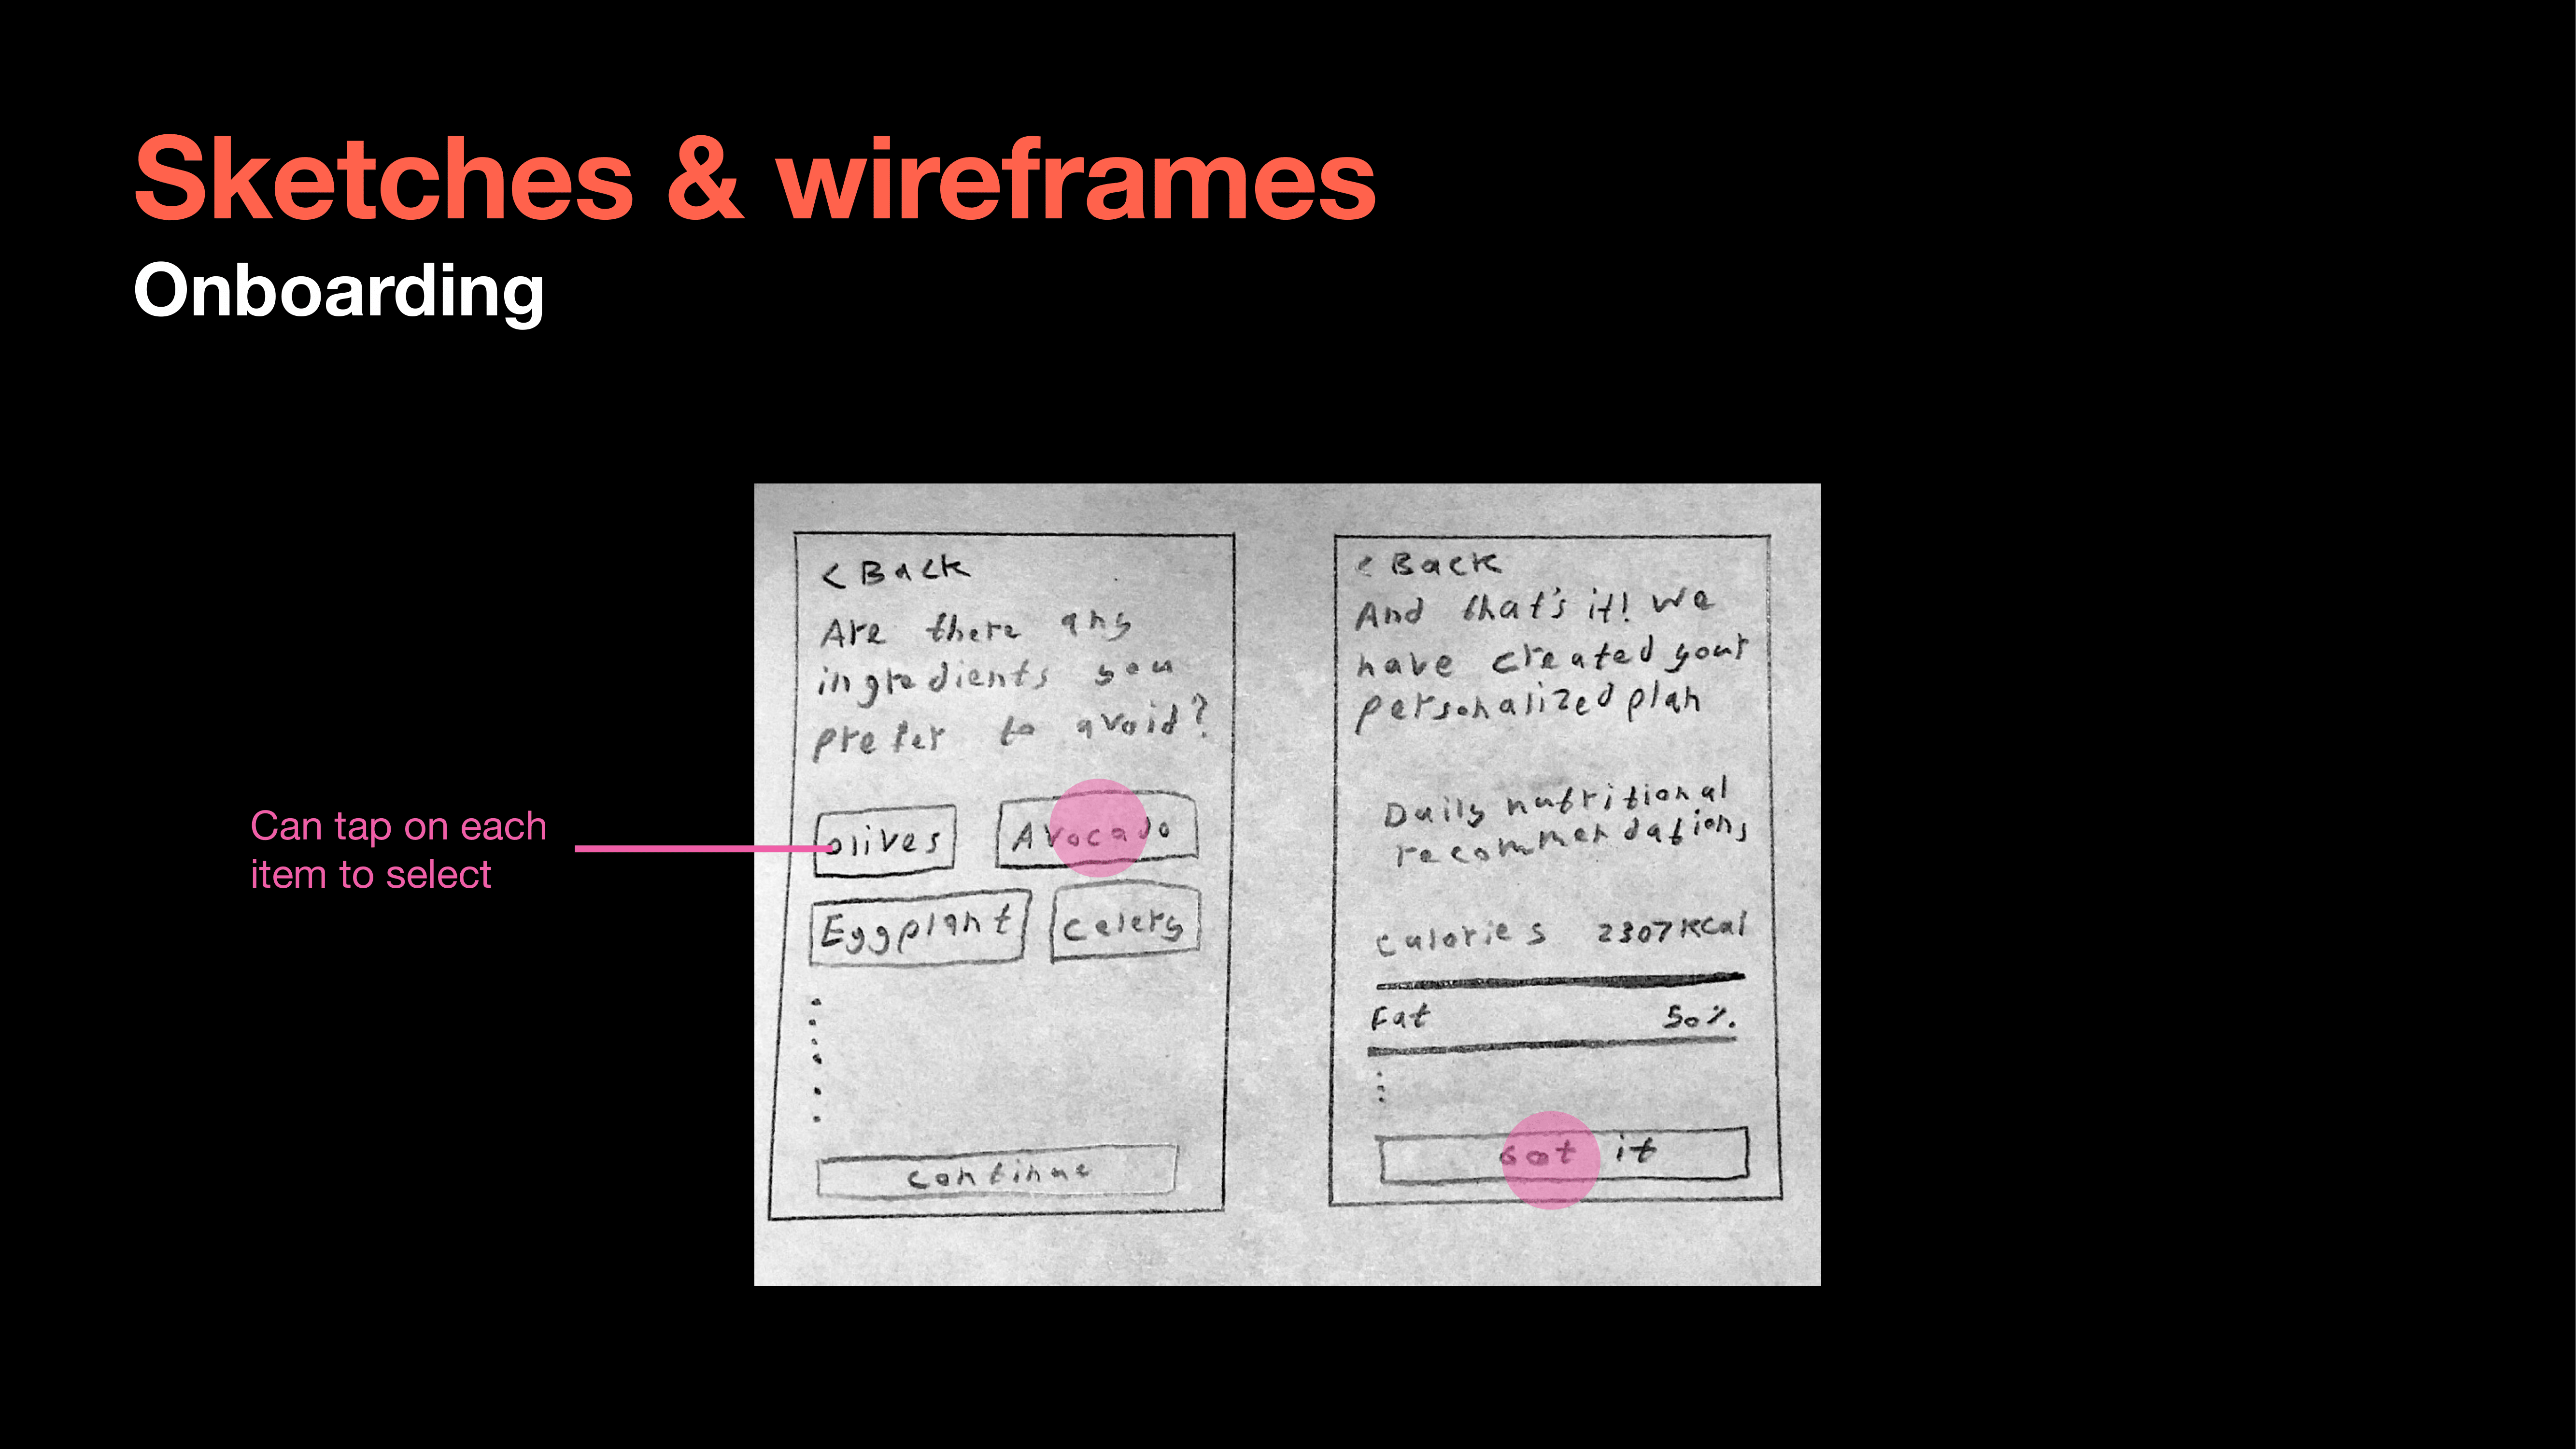 Sketches & wireframes
Onboarding
Can tap on each
item to select
< Back
Are there any
ingredients you
prefer to avoid?
olives
Avocado
Eggplant
celery
continue
< Back
And that's it! We
have created your
personalized plan
Daily nutritional
recommendations
calories 2307 Kcal
Fat 50%.
Got it